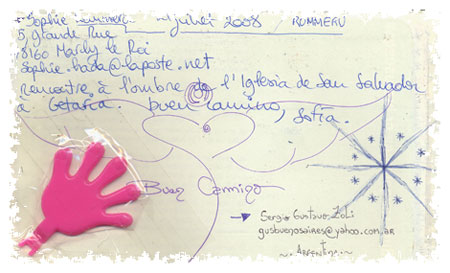 Sophie juillet 2008 RUMMERU
5 grande Rue
8160 Marly le Roi
Sophie.hada@laposte.net
rencontre à l'ombre de l'Iglesia de San Salvador
à Getaria. buen camino, Sofia.
Buen Camino
Sergio Gustavo Zoli
gusbuenosaires@yahoo.com.ar
Argentina